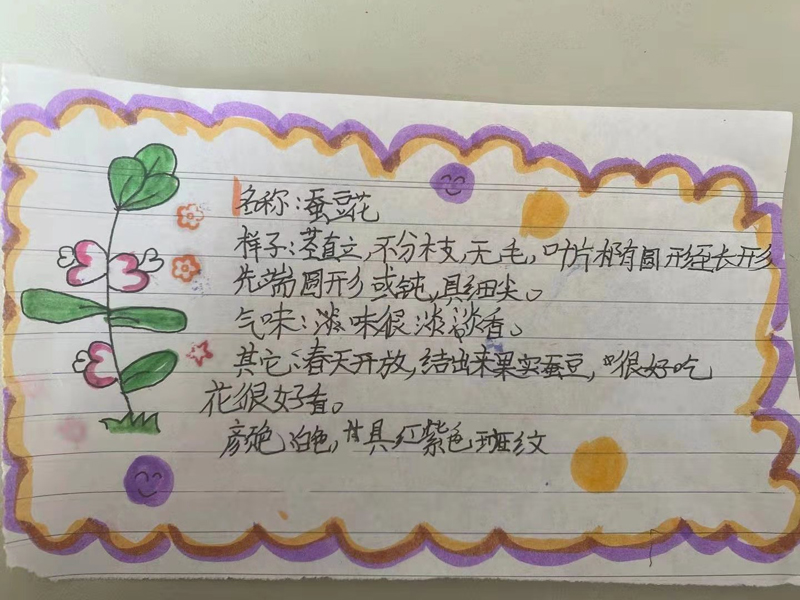 名称:蚕豆花
样子:茎直立,不分枝,无毛,叶片椭有圆形至长形
先端圆形或钝,具细尖。
气味:淡味很淡淡香。
其它:春天开放,结出来果实蚕豆,很好吃
花很好看。
颜色 白色,具红紫色斑纹